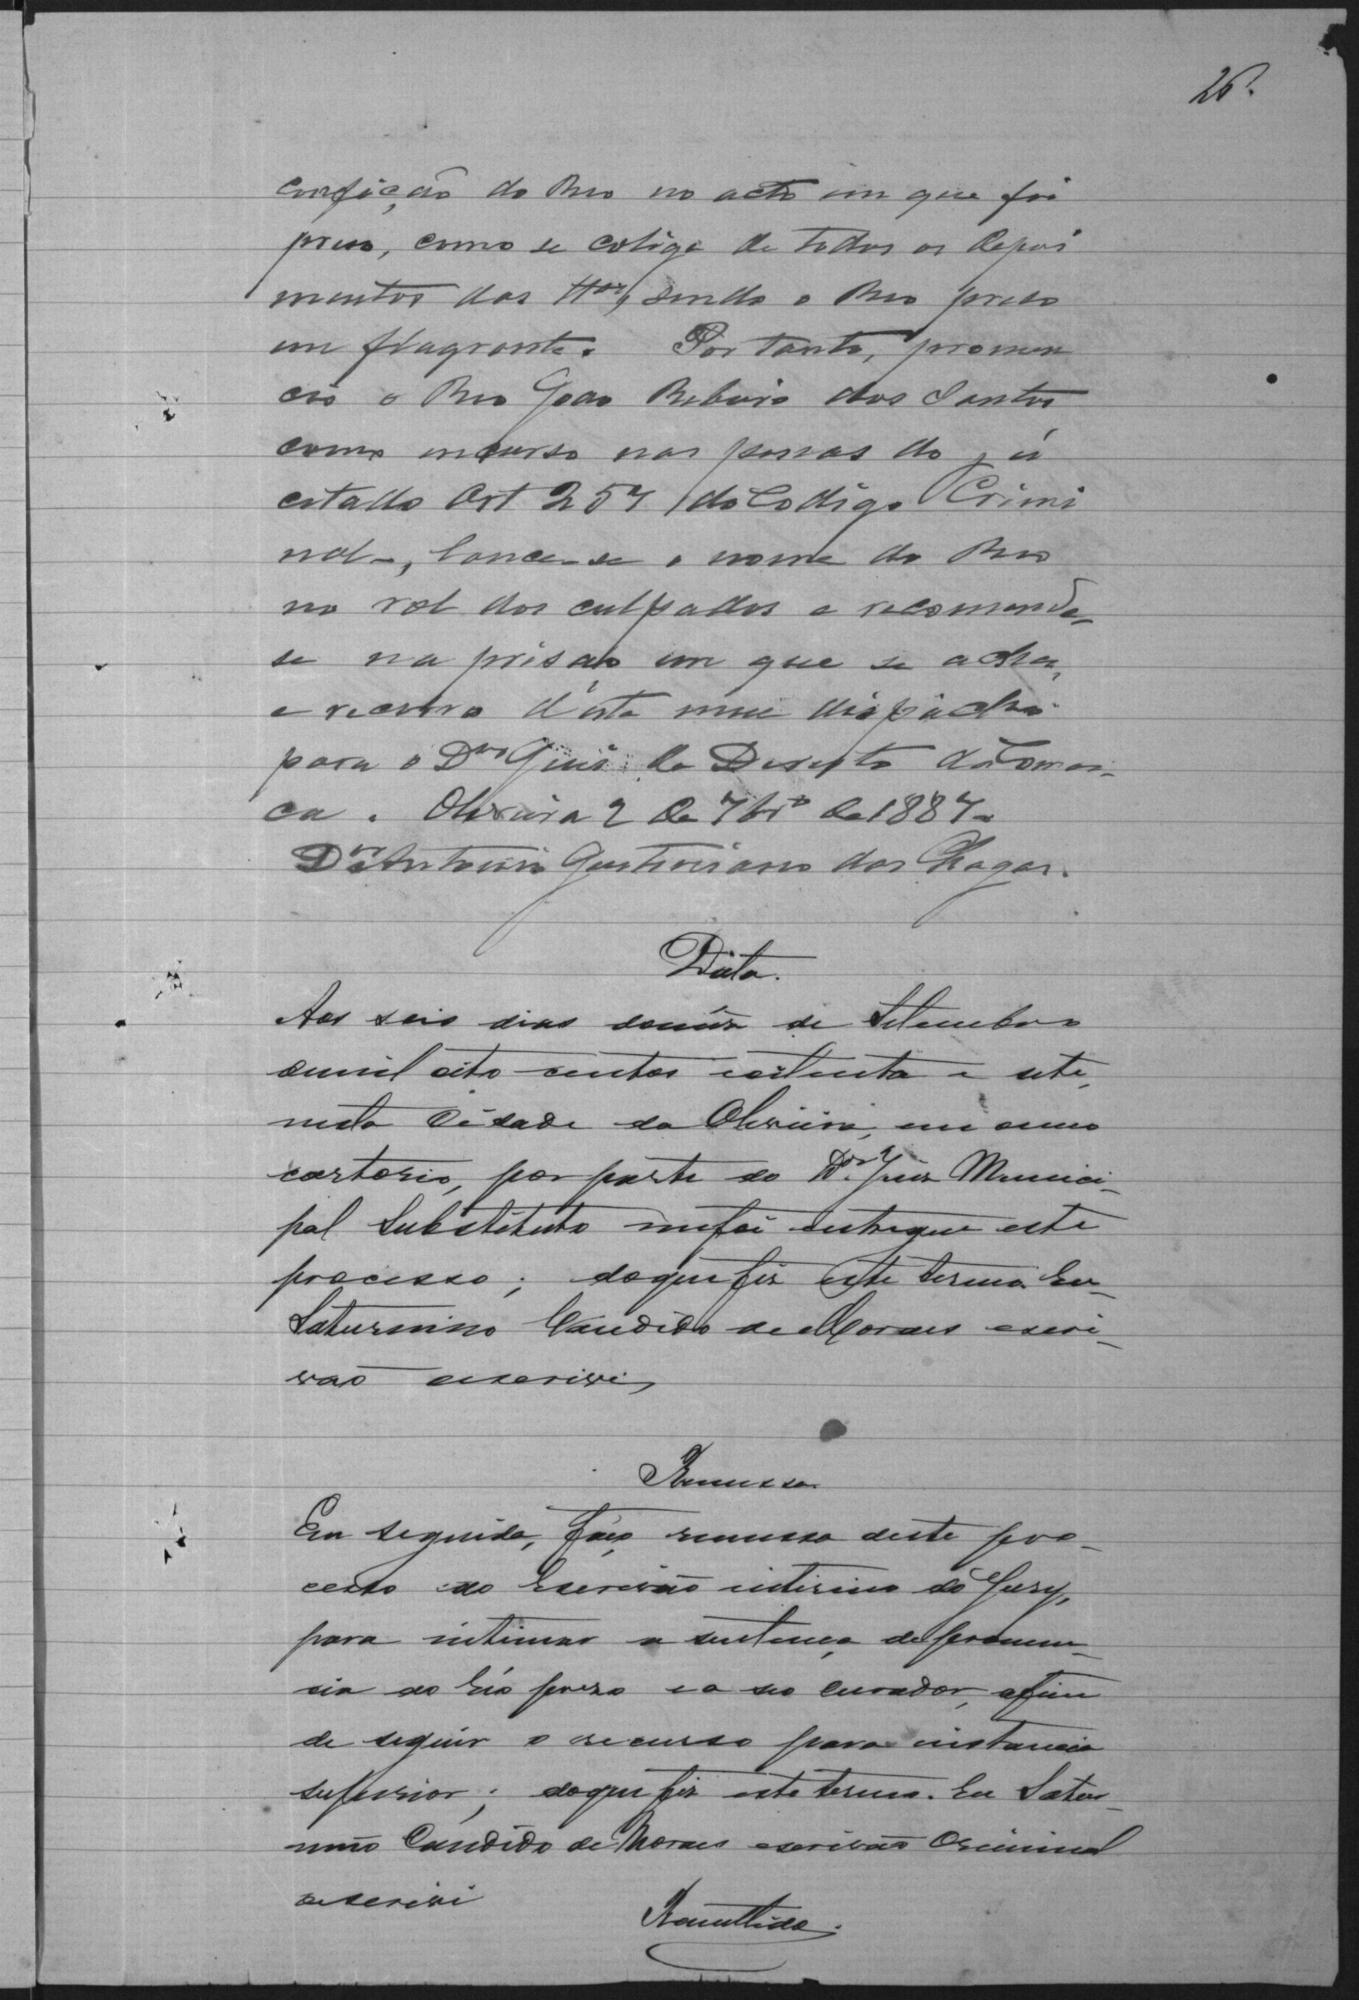 26.
confição do Reo no acto em que foi
preso, como se colige de todos os depoi
mentos das ttas, sendo o Reo preso
em flagrante. Portanto, pronun
cio o Reo João Ribeiro dos Santos
como incurso nas pennas do já
citado Art 257 do Codigo Crimi
nal, lance-se o nome do Reo
no rol dos culpados e recomende-
se na prisão em que se acha,
e recorro d'este meu dispacho
para o Dor Juis de Dereito da Comar-
ca. Oliveira 2 de 7brº de 1887.
Dor Antonio Justiniano das Chagas.
Data.
Aos seis dias domez de Setembro
demil oito centos eoitenta e sete,
nesta Cidade da Oliveira, em meu
cartorio, por parte do Dor Juiz Munici-
pal Substituto mefoi entregue este
processo; doquefiz este termo. Eu
Saturnino Candido de Moraes escri-
vão oescrevi,
Remessa
Em seguida, faço remessa deste pro-
cesso ao Escrivão interino do Jury,
para intimar a sentença de pronun-
cia ao Réo prezo e a seo curador, afim
de seguir o recurso para instancia
superior; doque fiz este termo. Eu Satur-
nino Candido de Moraes escrivão Criminal
oescrevi
Remettido.